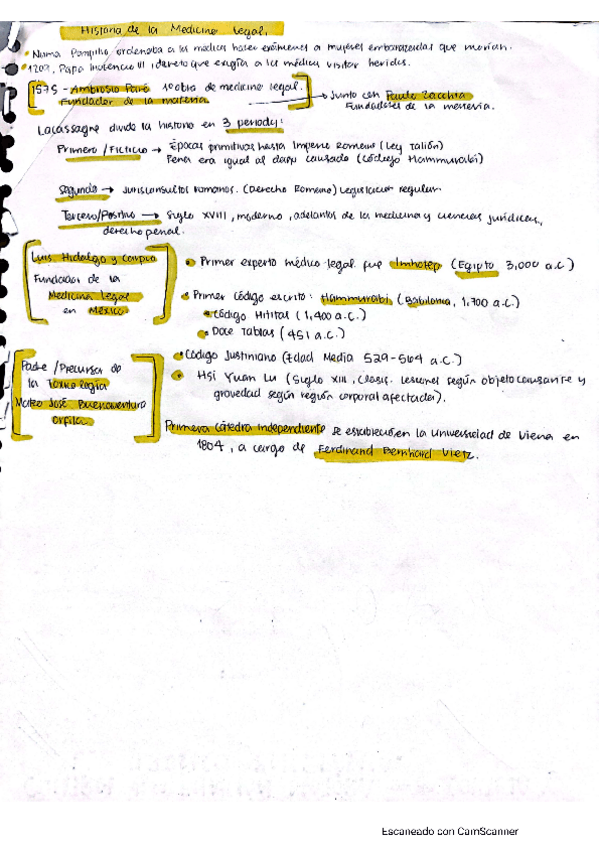 Historia de la Medicina Legal.
• Numa Pompilio ordenaba a los médicos hacer exámenes a mujeres embarazadas que morían.
• 1209, Papa Inocencio III, decreto que exigía a los médicos visitar heridos.
1575 - Ambrosio Paré 1° obra de medicina legal. → Junto con Paulo Zacchia
Fundador de la materia Fundadores de la
Lacassagne divide la historia en 3 periodos:
Primero / Ficticio → Épocas primitivas hasta Imperio Romano (Ley Talión)
Pena era igual al daño causado (código Hammurabi)
Segundo → Jurisconsultos romanos. (Derecho Romano) Legislación regular
Tercero/Positivo → Siglo XVIII, moderno, adelantos de la medicina y ciencias jurídicas,
derecho penal.
Luis Hidalgo y Carpio
Fundador de la
Medicina Legal
en México
• Primer experto médico-legal fue Imhotep (Egipto 3,000 a.C)
• Primer Código escrito: Hammurabi, (Babilonia, 1,700 a.C.)
• Código Hititas (1,400 a.C.)
• Doce Tablas (451 a.C.)
Padre / Precursor de
la Toxicología
Mateo José Buenaventura
Orfila
• Código Justiniano (Edad Media 529-564 a.C.)
• Hsi Yuan Lu (Siglo XIII, Clasif. lesiones según objeto causante y
gravedad según región corporal afectada).
Primera cátedra independiente se estableció en la Universidad de Viena en
1804, a cargo de Ferdinand Bernhard Vietz.
Escaneado con CamScanner